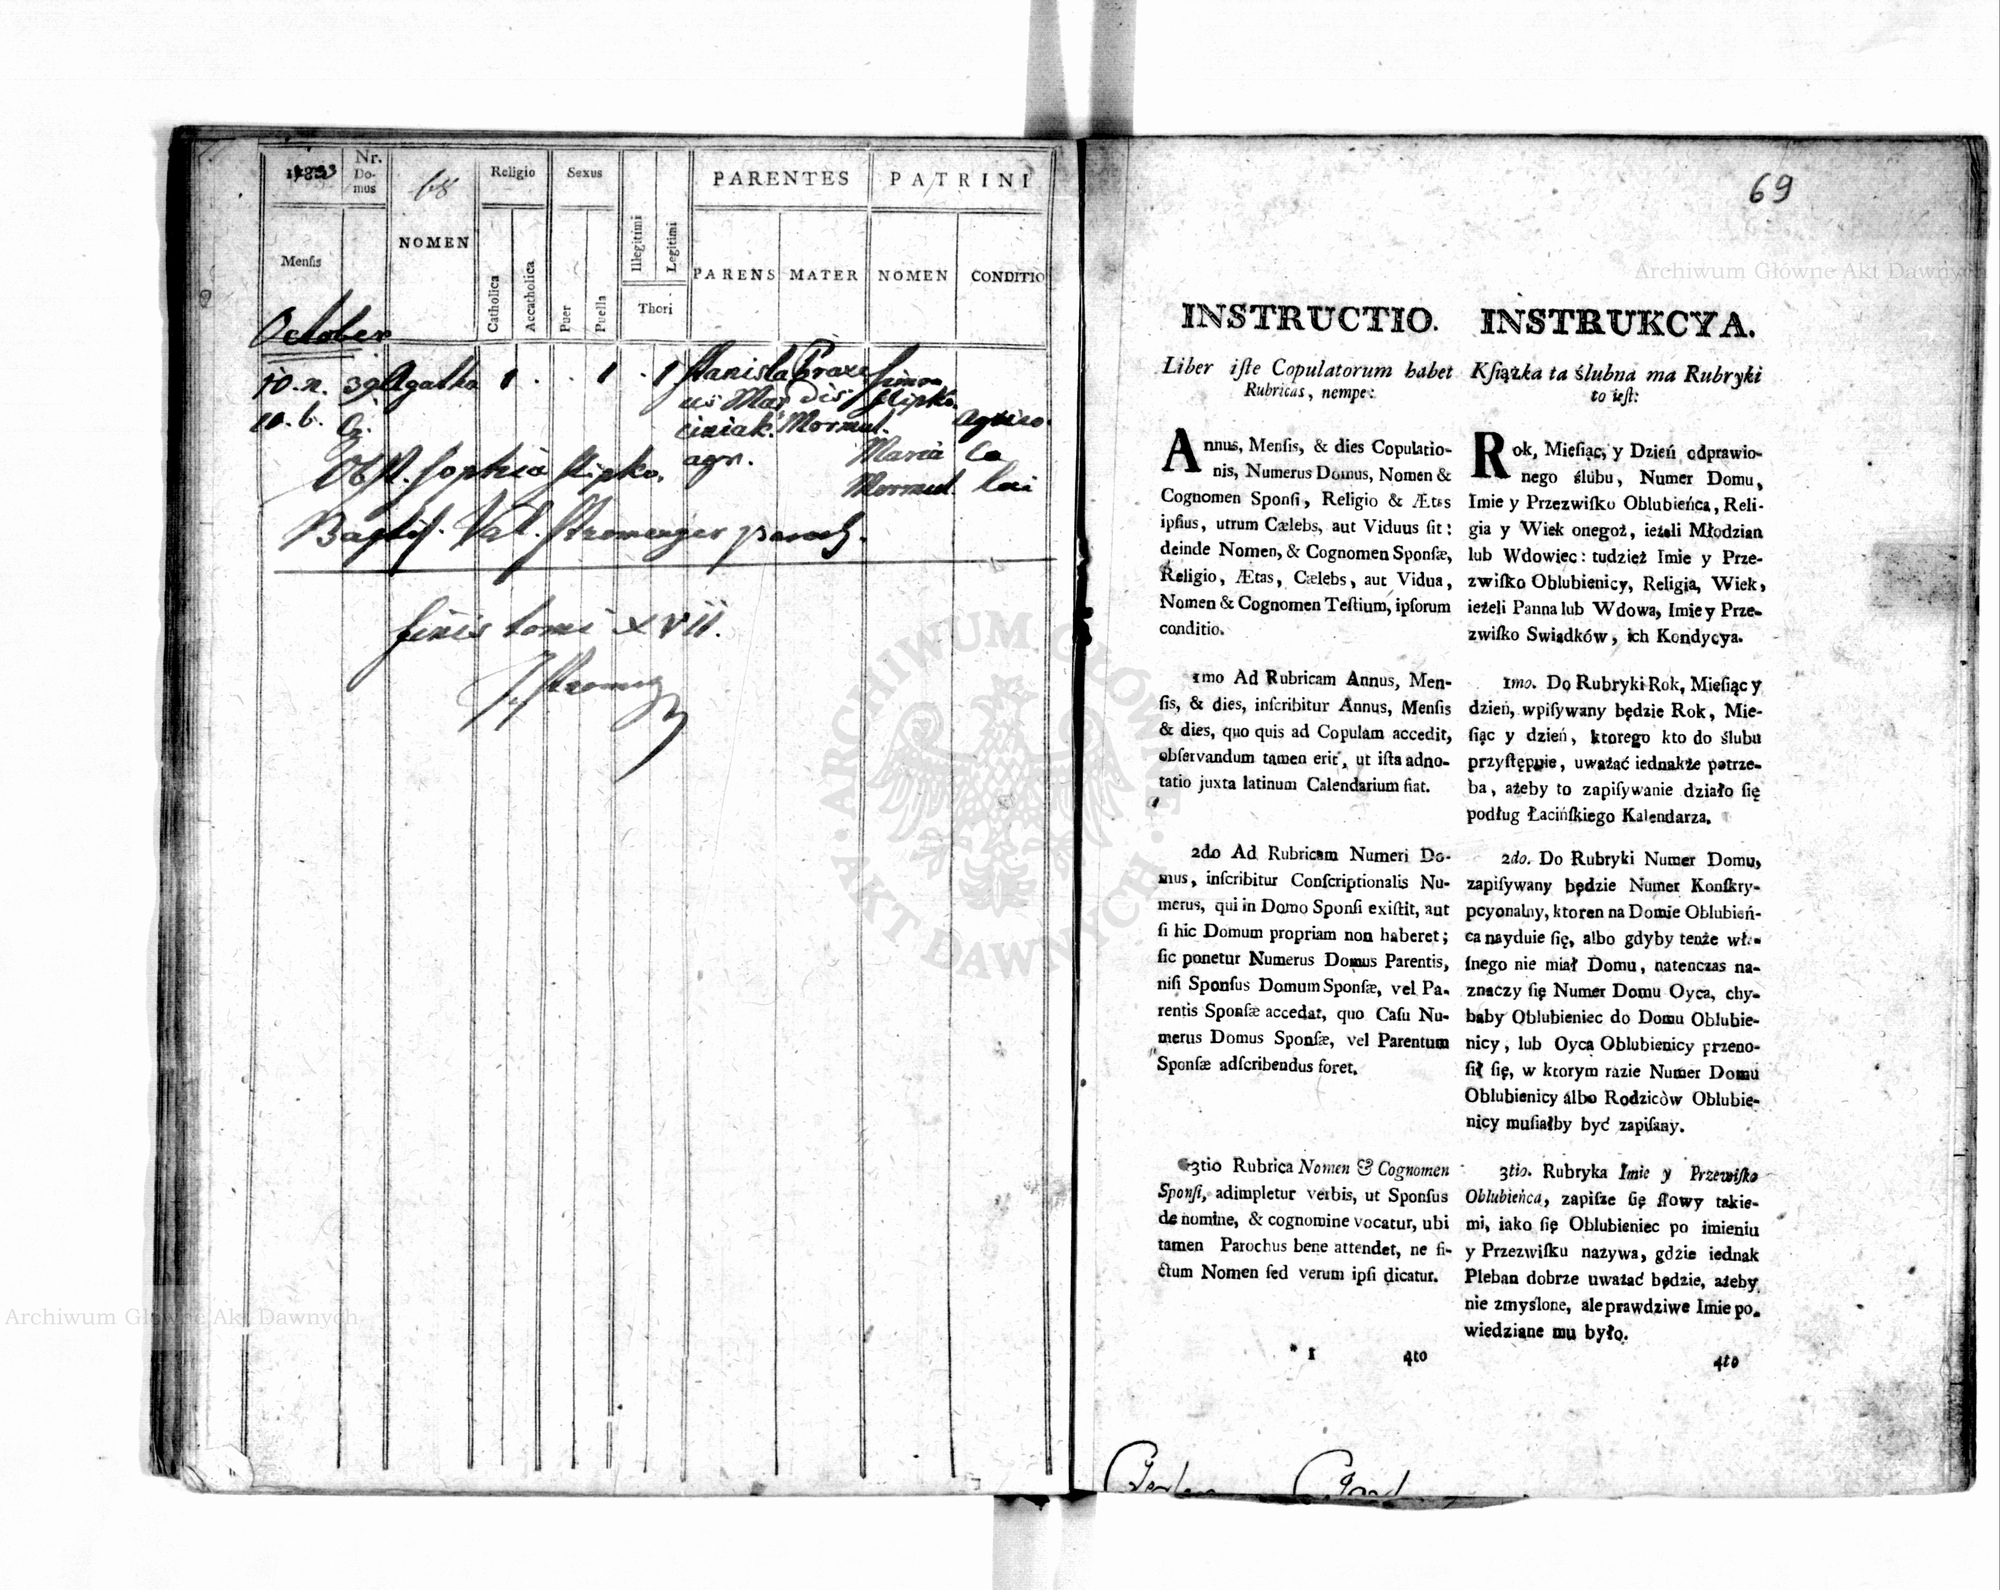 Nr.
Do-
mus
68
Religio
Sexus
PARENTES
PATRINI
Mensis
NOMEN
Catholica
Accatholica
Puer
Puella
Illegitimi
Legitimi
Thori
PARENS
MATER
NOMEN
CONDITIO
October
10. n. 39 Agatha 1 . . 1 . 1 Stanisla Praxe
10. b. us Mar dis Slipko.
ciniak. Mormul. agrico
agr. Maria la
Obst. Sophia Slipko. Mormul.
Baptis. Val. Stromenger paroch.
finis tomi XVII.
69
INSTRUCTIO.
Liber iſte Copulatorum habet
Rubricas, nempe:
Annus, Menſis, & dies Copulatio-
nis, Numerus Domus, Nomen &
Cognomen Sponſi, Religio & Ætas
ipſius, utrum Cælebs, aut Viduus ſit:
deinde Nomen, & Cognomen Sponſæ,
Religio, Ætas, Cælebs, aut Vidua,
Nomen & Cognomen Teſtium, ipſorum
conditio.
1mo Ad Rubricam Annus, Men-
ſis, & dies, inſcribitur Annus, Menſis
& dies, quo quis ad Copulam accedit,
obſervandum tamen erit, ut iſta adno-
tatio juxta latinum Calendarium fiat.
2do Ad Rubricam Numeri Do-
mus, inſcribitur Conſcriptionalis Nu-
merus, qui in Domo Sponſi exiſtit, aut
ſi hic Domum propriam non haberet;
ſic ponetur Numerus Domus Parentis,
niſi Sponſus Domum Sponſæ, vel Pa-
rentis Sponſæ accedat, quo Caſu Nu-
merus Domus Sponſæ, vel Parentum
Sponſæ adſcribendus foret.
3tio Rubrica Nomen & Cognomen
Sponſi, adimpletur verbis, ut Sponſus
de nomine, & cognomine vocatur, ubi
tamen Parochus bene attendet, ne fi-
ctum Nomen ſed verum ipſi dicatur.
* 1 4to
INSTRUKCYA.
Kſiążka ta ślubna ma Rubryki
to ieſt:
Rok, Mieſiąc, y Dzień odprawio-
nego ślubu, Numer Domu,
Imie y Przezwiſko Oblubieńca, Reli-
gia y Wiek onegoż, ieżeli Młodzian
lub Wdowiec: tudzież Imie y Prze-
zwiſko Oblubienicy, Religia, Wiek,
ieżeli Panna lub Wdowa, Imie y Prze-
zwiſko Swiadków, ich Kondycya.
1mo. Do Rubryki Rok, Mieſiąc y
dzień, wpiſywany będzie Rok, Mie-
ſiąc y dzień, ktorego kto do ślubu
przyſtępuie, uważać iednakże potrze-
ba, ażeby to zapiſywanie działo ſię
podług Łacińſkiego Kalendarza.
2do. Do Rubryki Numer Domu,
zapiſywany będzie Numer Konſkry-
pcyonalny, ktoren na Domie Oblubień-
ca nayduie ſię, albo gdyby tenże wła-
ſnego nie miał Domu, natenczas na-
znaczy ſię Numer Domu Oyca, chy-
baby Oblubieniec do Domu Oblubie-
nicy, lub Oyca Oblubienicy przeno-
ſił ſię, w ktorym razie Numer Domu
Oblubienicy albo Rodziców Oblubie-
nicy muſiałby być zapiſany.
3tio. Rubryka Imie y Przezwiſko
Oblubieńca, zapiſze ſię ſłowy takie-
mi, iako ſię Oblubieniec po imieniu
y Przezwiſku nazywa, gdzie iednak
Pleban dobrze uważać będzie, ażeby
nie zmyślone, ale prawdziwe Imie po-
wiedziane mu było.
4to
Archiwum Główne Akt Dawnych
Archiwum Główne Akt Dawnych
ARCHIWUM GŁÓWNE AKT DAWNYCH